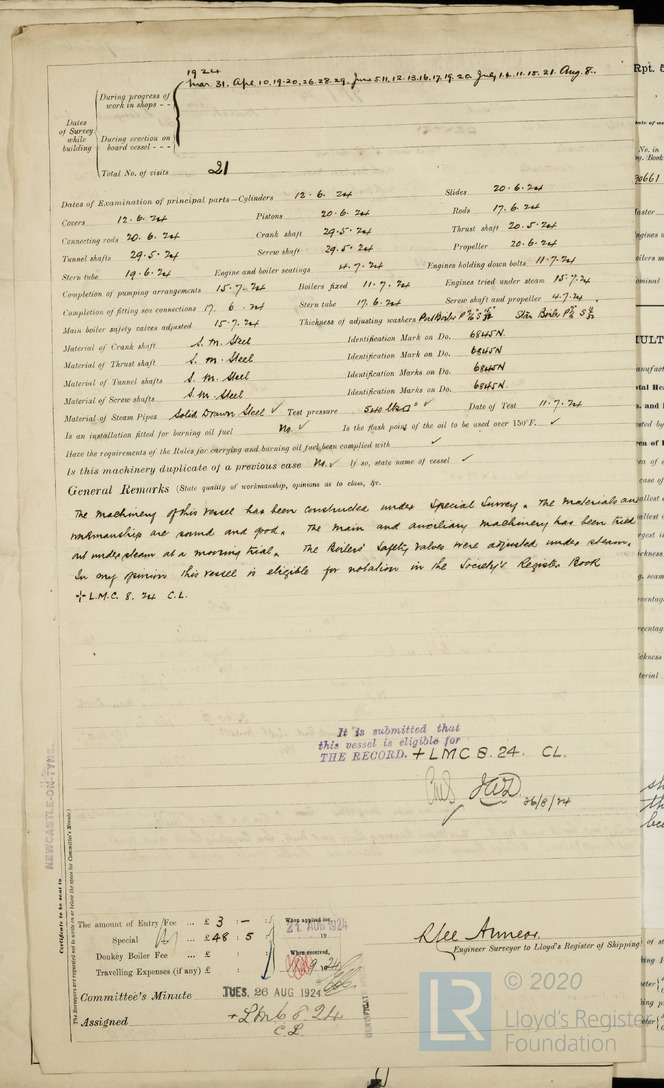 1924
Mar. 31. Apl. 10.19.20.26.28.29. June 5.11.12.13.16.17.19.20. July 1.4.11.15.21. Aug. 8.
During progress of work in shops - -
Dates of Survey while building
During erection on board vessel - - -
Total No. of visits 21
Dates of Examination of principal parts—Cylinders 12.6.24 Slides 20.6.24
Covers 12.6.24 Pistons 20.6.24 Rods 17.6.24
Connecting rods 20.6.24 Crank shaft 29.5.24 Thrust shaft 20.5.24
Tunnel shafts 29.5.24 Screw shaft 29.5.24 Propeller 20.6.24
Stern tube 19.6.24 Engine and boiler seatings 4.7.24 Engines holding down bolts 11.7.24
Completion of pumping arrangements 15.7.24 Boilers fixed 11.7.24 Engines tried under steam 15.7.24
Completion of fitting sea connections 17.6.24 Stern tube 17.6.24 Screw shaft and propeller 4.7.24
Main boiler safety valves adjusted 15.7.24 Thickness of adjusting washers Port Boiler Star Boiler
Material of Crank shaft S.M. Steel Identification Mark on Do. 6845N
Material of Thrust shaft S.M. Steel Identification Mark on Do. 6845N
Material of Tunnel shafts S.M. Steel Identification Marks on Do. 6845N
Material of Screw shafts S.M. Steel Identification Marks on Do. 6845N.
Material of Steam Pipes Solid Drawn Steel ✓ Test pressure 540 lbs □" ✓ Date of Test 11.7.24
Is an installation fitted for burning oil fuel No. ✓ Is the flash point of the oil to be used over 150°F. ✓
Have the requirements of the Rules for carrying and burning oil fuel been complied with ✓
Is this machinery duplicate of a previous case No. ✓ If so, state name of vessel ✓
General Remarks (State quality of workmanship, opinions as to class, &c.
The machinery of this vessel has been constructed under Special Survey. The materials and
workmanship are sound and good. The main and auxiliary machinery has been tried
out under steam at a mooring trial. The Boilers' Safety Valves were adjusted under steam.
In my opinion this vessel is eligible for notation in the Society's Register Book
+ L.M.C. 8. 24 C.L.
It is submitted that
this vessel is eligible for
THE RECORD. + LMC 8. 24. CL.
26/8/24
NEWCASTLE-ON-TYNE.
Certificate to be sent to
(The Surveyors are requested not to write on or below the space for Committee's Minute.)
The amount of Entry Fee ... £ 3 : - :
Special ... £ 48 : 5 :
Donkey Boiler Fee ... £ : :
Travelling Expenses (if any) £ : :
When applied for,
21 AUG 1924
19
When received,
9.24
Engineer Surveyor to Lloyd's Register of Shipping.
Committee's Minute TUES. 26 AUG 1924
Assigned + LMC 8 24
C.L.
© 2020
LR
Lloyd's Register
Foundation
Rpt. 5
No. in
Reg. Book
90661